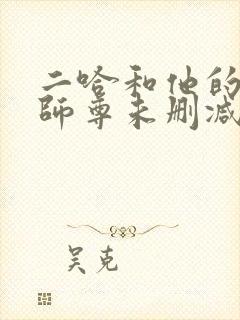 二哈和他的
师尊未删减
吴克